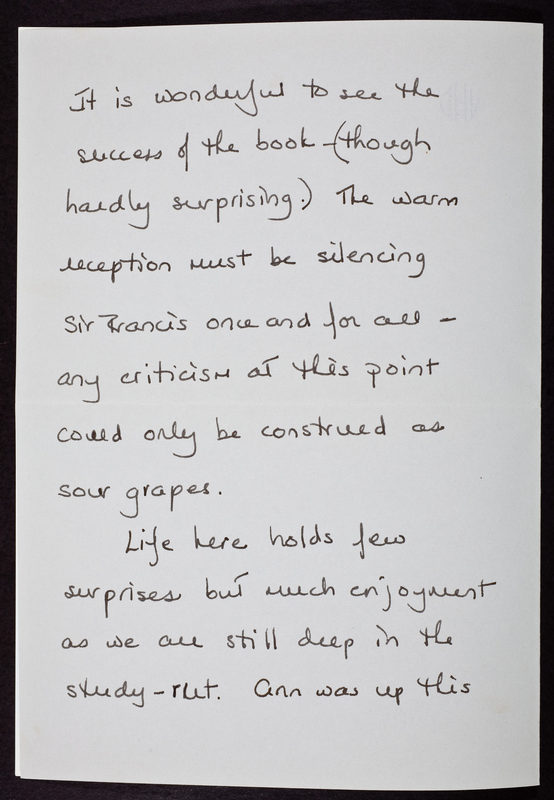 It is wonderful to see the
success of the book - (though
hardly surprising.) The warm
reception must be silencing
Sir Francis once and for all -
any criticism at this point
could only be construed as
sour grapes.
Life here holds few
surprises but much enjoyment
as we are still deep in the
study-rut. Ann was up this